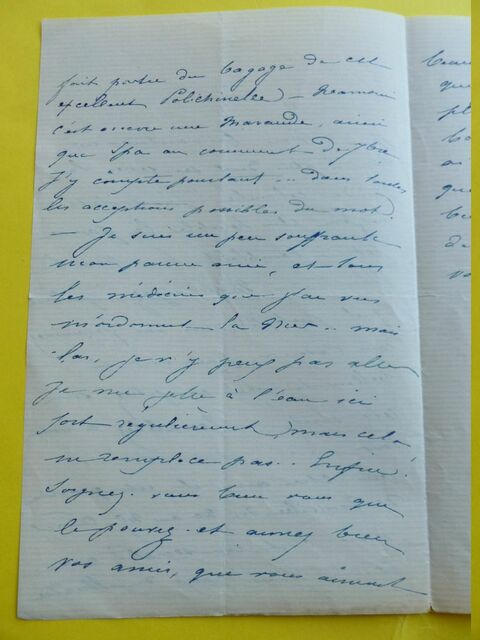 fait partie du bagage de cet
excellent Polichinelle) –
c'est encore une maraude, ainsi
que Spa au comment de 7bre
J'y compte pourtant... dans toutes
les acceptions possibles du mot.
— Je suis un peu souffrante
mon pauvre ami, et tous
les médecins que j'ai vus
m'ordonnent la mer... mais
las, je n'y peux pas aller
Je me jette à l'eau ici
fort régulièrement, mais cela
ne remplace pas.. Enfin!
Soignez-vous bien vous que
le pouvez et aimez bien
vos amis, que vous aiment